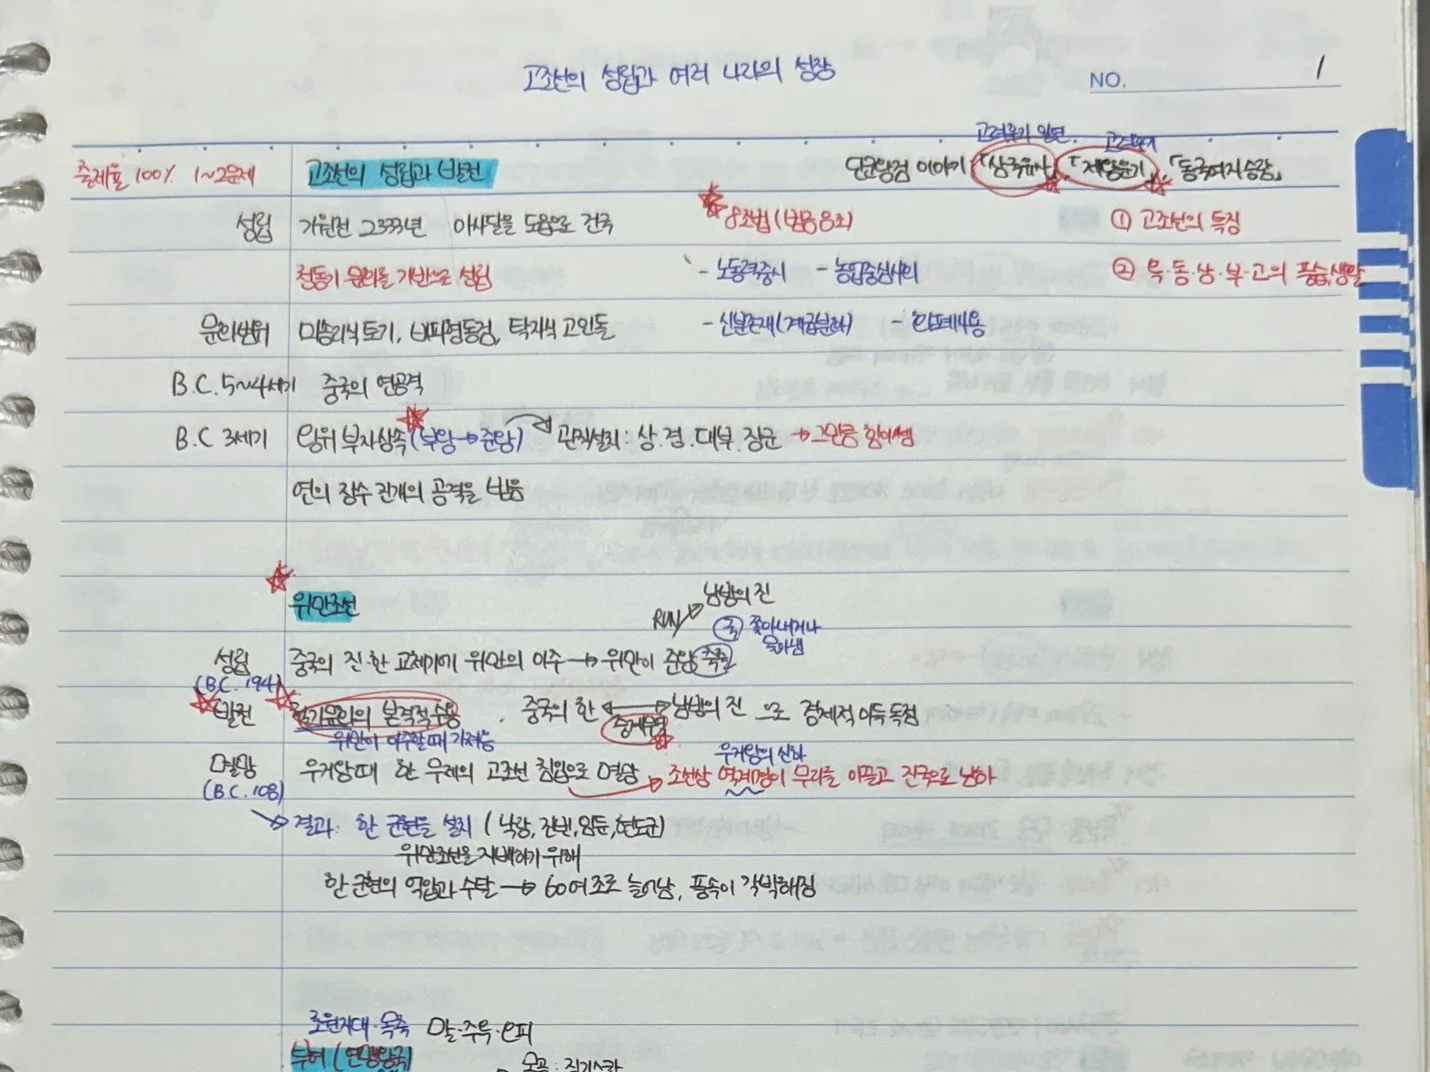 고조선의 성립과 여러 나라의 성장
NO. 1
고려후기 일연 고려후기
출제율 100% 1~2문제 고조선의 성립과 발전 단군왕검 이야기 「삼국유사」, 「제왕운기」, 「동국여지승람」
성립 기원전 2333년 아사달을 도읍으로 건국 8조법 (범금8조) ① 고조선의 특징
청동기 문화를 기반으로 성립 - 노동력중시 - 농업중심사회 ② 옥·동·삼·부·고의 풍습, 생활
문화범위 미송리식 토기, 비파형동검, 탁자식 고인돌 - 신분존재 (계급분화) - 화폐사용
B.C. 5~4세기 중국의 연공격
B.C 3세기 왕위 부자상속 (부왕→준왕) 관직설치 : 상. 경. 대부. 장군 → 그만큼 힘이셈
연의 장수 진개의 공격을 받음
위만조선
RUN 남방의 진
쫓아내거나
몰아냄
성립 중국의 진·한 교체기에 위만의 이주 → 위만이 준왕 축출
(B.C. 194)
발전 철기문화의 본격적 수용 . 중국의 한 ↔ 남방의 진 으로 경제적 이득 독점
중계무역
위만이 이주할때 가져옴
우거왕의 신하
멸망 우거왕때 한 무제의 고조선 침입으로 멸망 → 조선상 역계경이 무리를 이끌고 진국으로 남하
(B.C. 108)
결과: 한 군현들 설치 (낙랑, 진번, 임둔, 현도군)
위만조선을 지배하기 위해
한 군현의 억압과 수탈 → 60여 조로 늘어남, 풍속이 각박해짐
초원지대·목축 말·주옥·모피
부여 (연맹왕국)